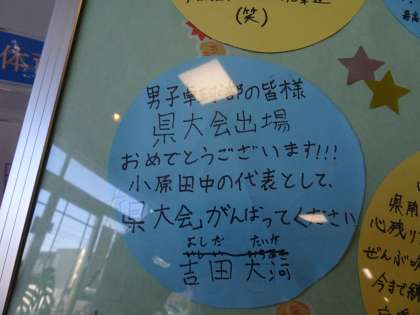 (笑)
男子卓球部の皆様
県大会出場
おめでとうございます!!!
小原田中の代表として、
「県大会」がんばってください
よしだ たいが
吉田 大河
県
心残り
ぜんぶの
今まで練